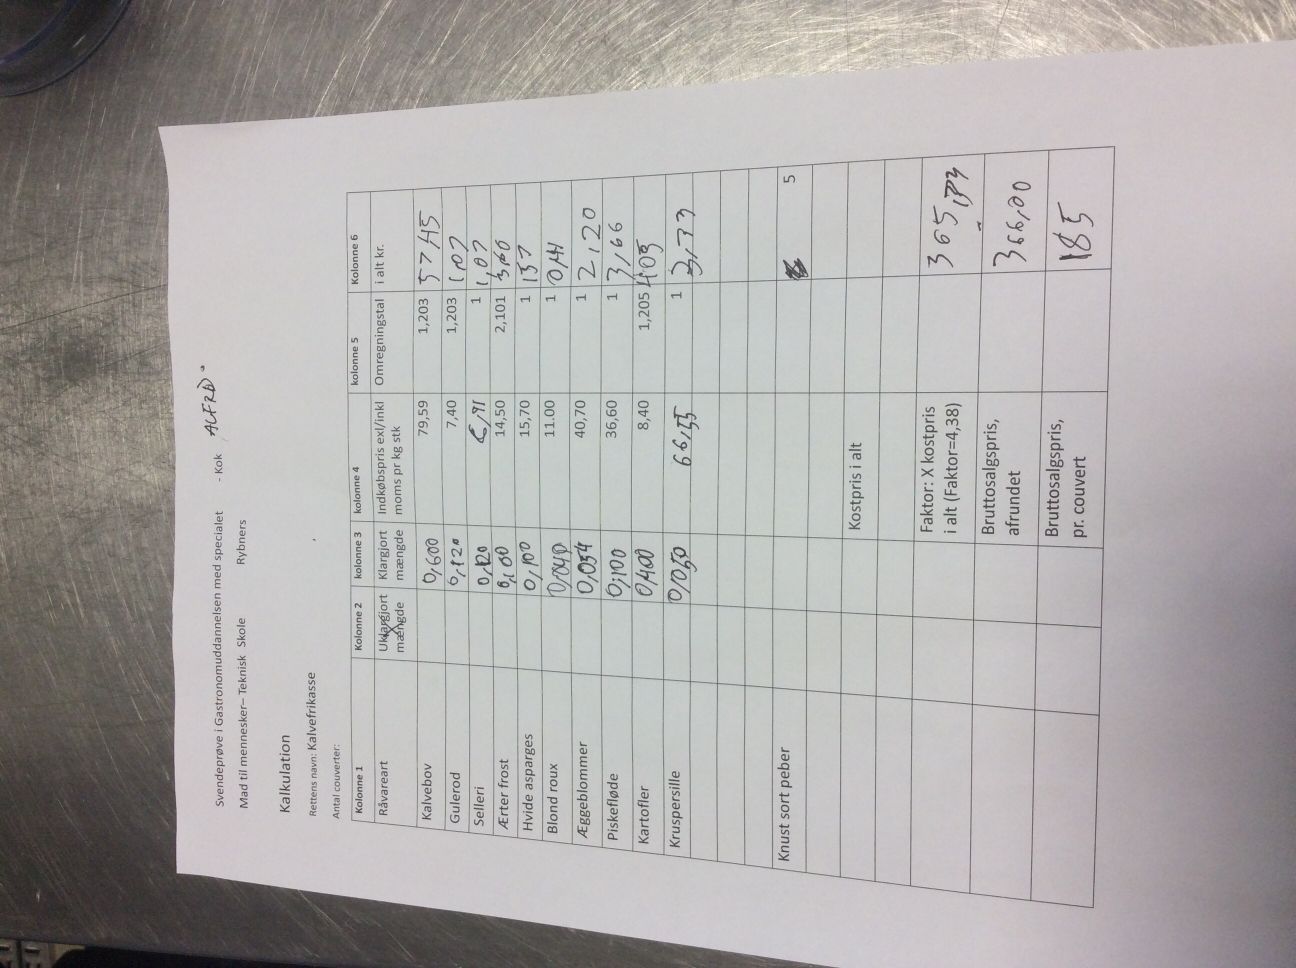 Svendeprøve i Gastronomuddannelsen med specialet - Kok ALFRED
Mad til mennesker– Teknisk Skole Rybners
Kalkulation
Rettens navn: Kalvefrikasse
Antal couverter:
Kolonne 1 Kolonne 2 kolonne 3 kolonne 4 kolonne 5 Kolonne 6
Råvareart Uklargjort mængde Klargjort mængde Indkøbspris exl/inkl moms pr kg stk Omregningstal i alt kr.
Kalvebov 0,600 79,59 1,203 57,45
Gulerod 0,120 7,40 1,203 1,07
Selleri 0,120 1 1,07
Ærter frost 0,100 14,50 2,101
Hvide asparges 0,100 15,70 1 157
Blond roux 0,040 11.00 1
Æggeblommer 0,054 40,70 1 2,20
Piskefløde 0,100 36,60 1 3,66
Kartofler 0,400 8,40 1,205 405
Kruspersille 0,050 66,55 1 3,33
Knust sort peber 5
Kostpris i alt
Faktor: X kostpris i alt (Faktor=4,38)
Bruttosalgspris, afrundet 366,00
Bruttosalgspris, pr. couvert 185